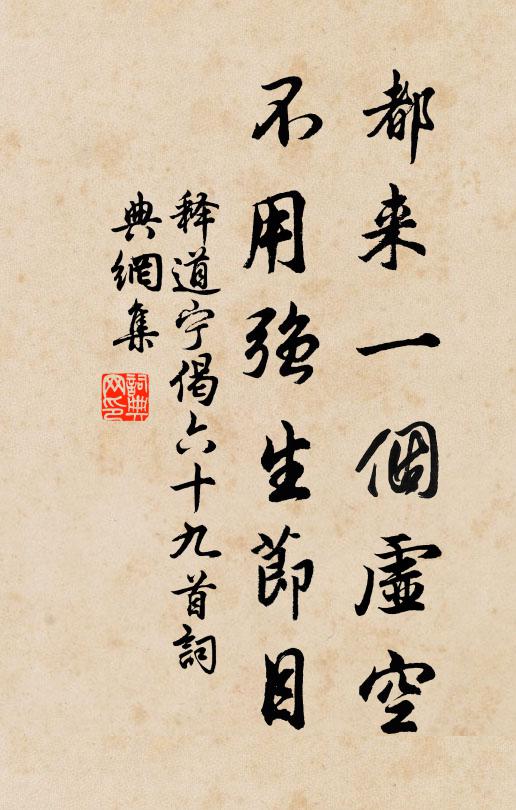 都来一個虛空
不用強生節目
释道宁偈六十九首詞
典網集
詞典
网印